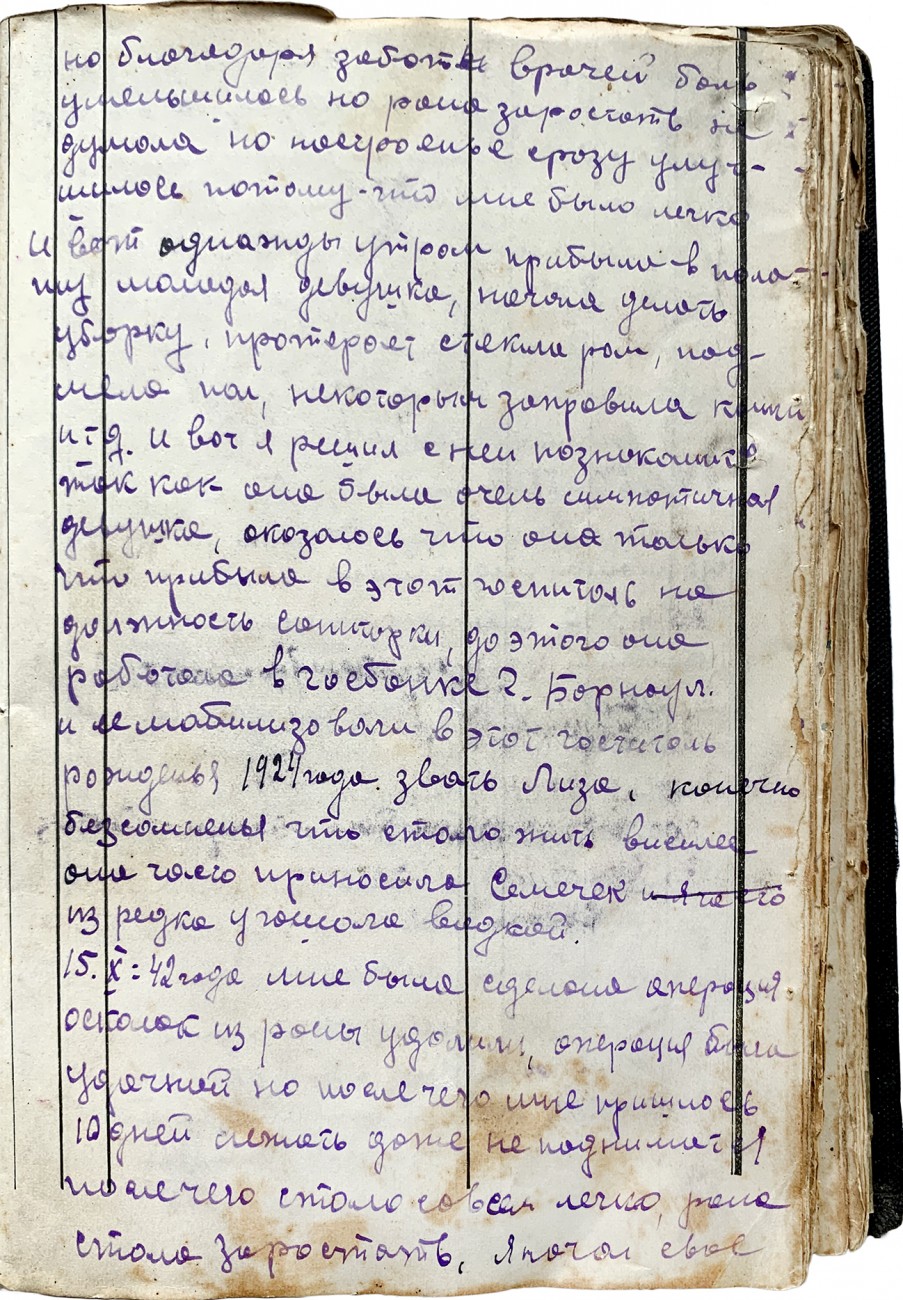 но благодаря заботы врачей боль
уменьшилось но рана заростать не
думала но настроенье сразу улуч-
шилось потому-что мне было легко
И вот однажды утром прибыла в пала-
ту молодая девушка, начала делать
уборку, протерает стекла рам, под-
мела пол, некоторым заправила койки
и т д. И вот я решил с ней познакомится
так как она была очень симпатичная
девушка, оказалось что она только
что прибыла в этот госпиталь на
должность санитарки, до этого она
работала в госбанке г. Борноул.
и мабилизовали в этот госпиталь
рожденья 1924 года. звать Лиза, конечно
безсомненья что стало жить висилее
она часто приносила Семечек и я часто
из редка угощала водкой.
15. X-42 года мне была сделана аперация
осколок из раны удалили, операция была
удачной но после чего мне пришлось
10 дней лежать даже не подниматся
после чего стало совсем легко, рана
стала заростать, я начал свое